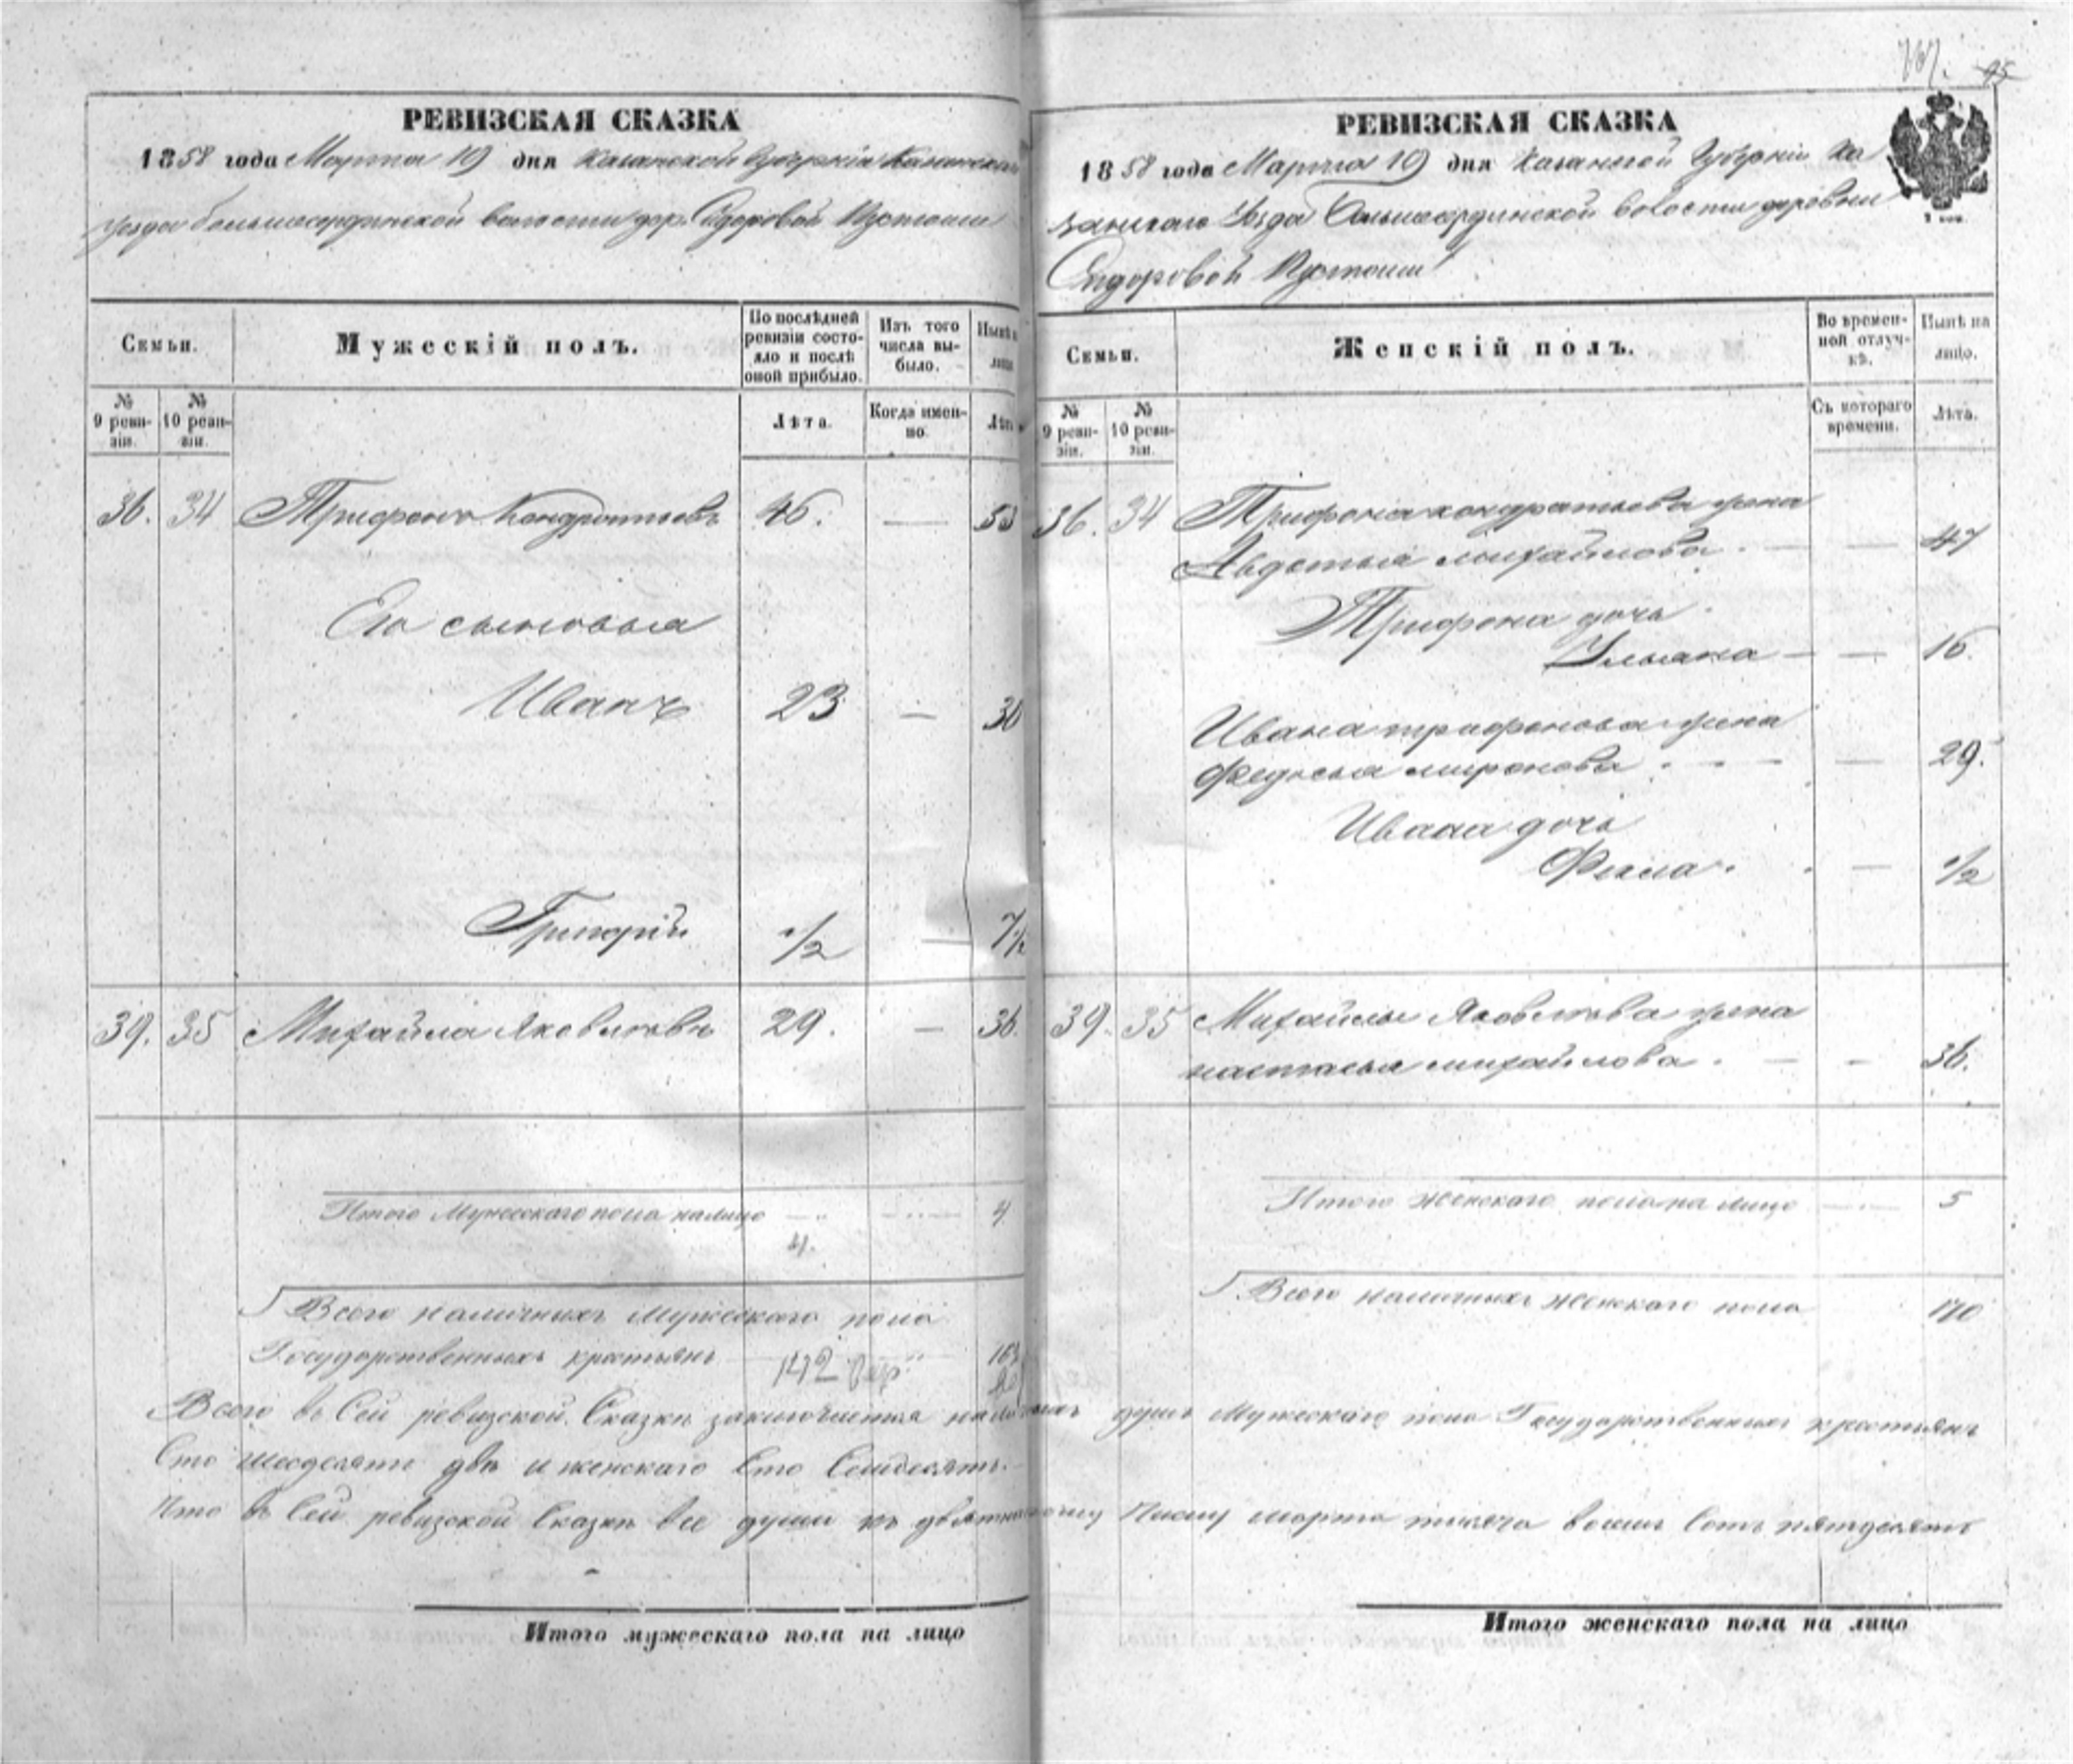 РЕВИЗСКАЯ СКАЗКА
1858 года Марта 19 дня Казанской Губерніи Казанскаго
уезда большесердинской волости дер. Сидоровой Пустоши
Семьи.
Мужескій полъ.
По послѣдней ревизіи состояло и послѣ оной прибыло.
Изъ того числа выбыло.
Нынѣ на лицо
№ 9 ревизіи.
№ 10 ревизіи.
Лѣта.
Когда именно.
Лѣта
36. 34 Трифонъ Кондратьевъ 46. — 53
Его сыновья
Иванъ 23 — 30
Григорій 1/2 — 7 1/2
39. 35 Михайла Яковлевъ 29. — 36.
Итого Мужескаго пола налицо 4
4.
Всего наличныхъ Мужескаго пола
Государственныхъ крестьянъ 162
142
РЕВИЗСКАЯ СКАЗКА
1858 года Марта 19 дня Казанской Губерніи Ка
занскаго Уезда Большесердинской волости деревни
Сидоровой Пустоши
Семьи.
Женскій полъ.
Во временной отлучкѣ.
Нынѣ на лицо.
№ 9 ревизіи.
№ 10 ревизіи.
Съ котораго времени.
Лѣта.
36. 34 Трифона кондратьева жена
Авдотья михайлова — 47
Трифона дочь
Ульяна — 16.
Ивана трифонова жена
Федосья миронова — 29.
Ивана дочь
Фекла — 1/2
39. 35 Михайлы Яковлева жена
настасья михайлова — 36.
Итого женскаго пола на лицо 5
Всего наличныхъ женскаго пола 170
Всего въ Сей ревизской Сказкѣ заключается наличныхъ душъ Мужескаго пола Государственныхъ крестьянъ
Сто шесдесять два и женскаго Сто Семдесять.
Что въ Сей ревизской Сказкѣ все души къ девятнацатому Числу марта тысяча восемь Сотъ пятдесятъ
Итого мужескаго пола на лицо
Итого женскаго пола на лицо